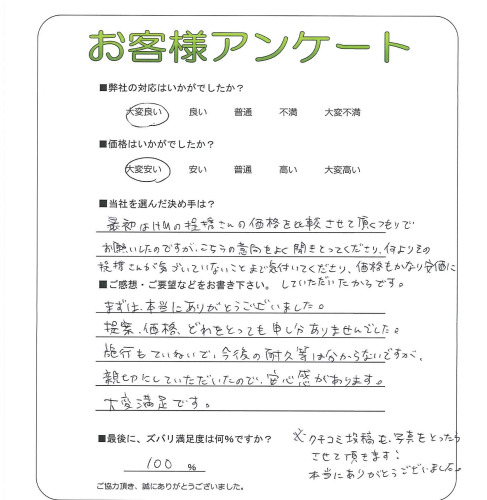 お客様アンケート
■弊社の対応はいかがでしたか？
大変良い 良い 普通 不満 大変不満
■価格はいかがでしたか？
大変安い 安い 普通 高い 大変高い
■当社を選んだ決め手は？
最初はHMの提携さんの価格を比較させて頂くつもりで
お願いしたのですが、こちらの意向をよく聞きとってくださり、何よりその
提携さんが気づいていないことまで気付いてくださり、価格もかなり安価に
していただいたからです。
■ご感想・ご要望などをお書き下さい。
まずは、本当にありがとうございました。
提案、価格、どれをとっても申し分ありませんでした。
施行もていねいで、今後の耐久等は分からないですが、
親切にしていただいたので、安心感があります。
大変満足です。
■最後に、ズバリ満足度は何％ですか？
100 ％
※クチコミ投稿も、写真をとったら
させて頂きます！
本当にありがとうございました。
ご協力頂き、誠にありがとうございました。